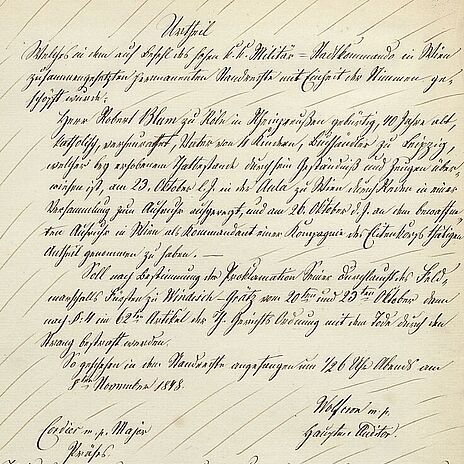 Urtheil
Welches in dem auf Befehl des hohen k. k. Militär=Stadtkommando in Wien
zusammengesetzten permanenten Standrechte mit Einheit der Stimmen ge-
schöpft wurde:
Herr Robert Blum zu Köln in Rheinpreußen gebürtig, 40 Jahre alt,
katholisch, verheurathet, Vater von 4 Kindern, Buchhändler zu Leipzig,
welcher bey erhobenem Thatbestande durch sein Geständniß und Zeugen über-
wiesen ist, am 23. Oktober l. J. in der Aula zu Wien durch Reden in einer
Versammlung zum Aufruhr aufgeregt, und am 26. Oktober d. J. an dem bewaffne-
ten Aufruhr in Wien als Kommandant einer Kompagnie des Elitenkorps thätigen
Antheil genommen zu haben. —
Soll nach Bestimmung der Proklamation Seiner Durchlaucht des Feld-
marschalls Fürsten zu Windisch-Grätz vom 20ten und 23ten Oktober dann
nach §: 4 im 62ten Artikel der Th. Gerichts Ordnung mit dem Tode durch den
Strang bestraft werden.
So geschehen in dem Standrechte angefangen um 1/26 Uhr Abends am
8ten November 1848.
Wolferom m. p.
Cordier m. p. Major
Hauptm Auditor.
Präses.